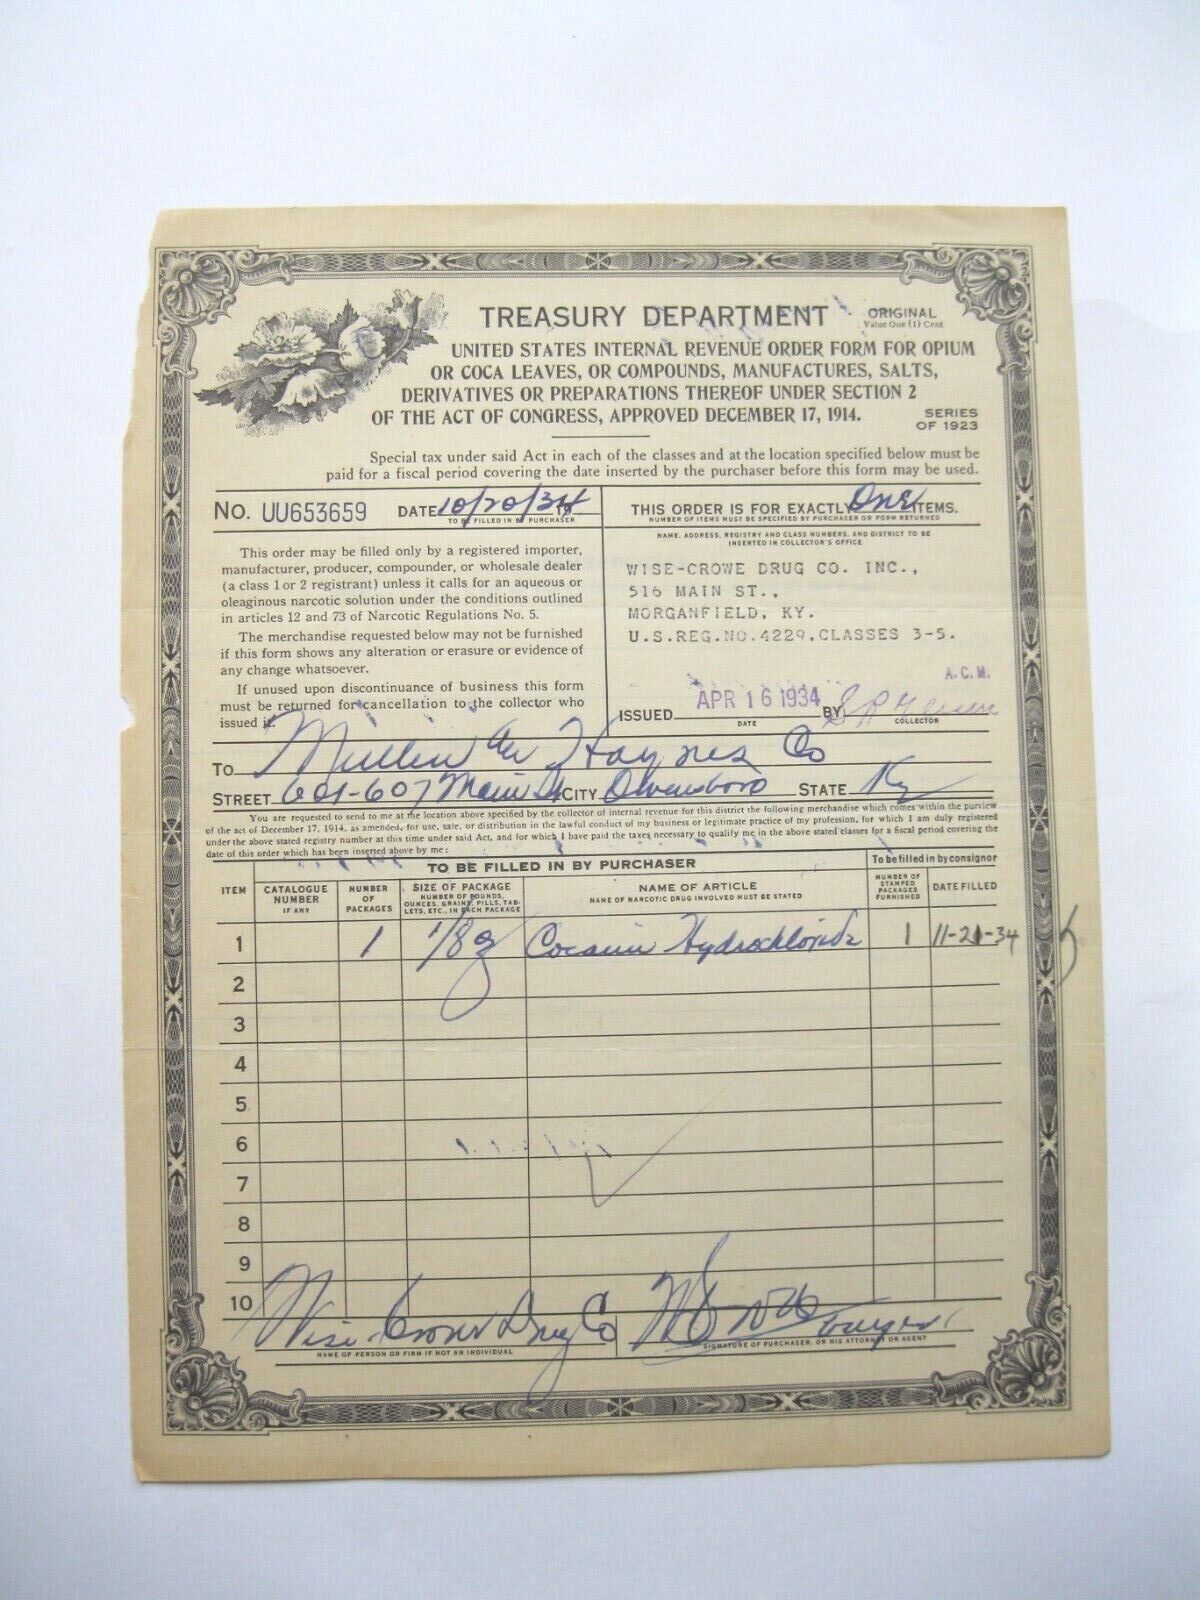 TREASURY DEPARTMENT
ORIGINAL
Value One (1) Cent
UNITED STATES INTERNAL REVENUE ORDER FORM FOR OPIUM
OR COCA LEAVES, OR COMPOUNDS, MANUFACTURES, SALTS,
DERIVATIVES OR PREPARATIONS THEREOF UNDER SECTION 2
OF THE ACT OF CONGRESS, APPROVED DECEMBER 17, 1914.
SERIES
OF 1923
Special tax under said Act in each of the classes and at the location specified below must be
paid for a fiscal period covering the date inserted by the purchaser before this form may be used.
NO. UU653659 DATE 10/20/34
TO BE FILLED IN BY PURCHASER
THIS ORDER IS FOR EXACTLY One ITEMS.
NUMBER OF ITEMS MUST BE SPECIFIED BY PURCHASER OR FORM RETURNED
This order may be filled only by a registered importer,
manufacturer, producer, compounder, or wholesale dealer
(a class 1 or 2 registrant) unless it calls for an aqueous or
oleaginous narcotic solution under the conditions outlined
in articles 12 and 73 of Narcotic Regulations No. 5.
The merchandise requested below may not be furnished
if this form shows any alteration or erasure or evidence of
any change whatsoever.
If unused upon discontinuance of business this form
must be returned for cancellation to the collector who
issued it.
NAME, ADDRESS, REGISTRY AND CLASS NUMBERS, AND DISTRICT TO BE
INSERTED IN COLLECTOR'S OFFICE
WISE-CROWE DRUG CO. INC.,
516 MAIN ST.,
MORGANFIELD, KY.
U.S.REG.NO.4229,CLASSES 3-5.
A.C.M.
ISSUED APR 16 1934 BY
DATE COLLECTOR
TO Haynes Co
STREET 601-607 Main St CITY Owensboro STATE Ky
You are requested to send to me at the location above specified by the collector of internal revenue for this district the following merchandise which comes within the purview
of the act of December 17, 1914, as amended, for use, sale, or distribution in the lawful conduct of my business or legitimate practice of my profession, for which I am duly registered
under the above stated registry number at this time under said Act, and for which I have paid the taxes necessary to qualify me in the above stated classes for a fiscal period covering the
date of this order which has been inserted above by me:
TO BE FILLED IN BY PURCHASER
To be filled in by consignor
ITEM
CATALOGUE
NUMBER
IF ANY
NUMBER
OF
PACKAGES
SIZE OF PACKAGE
NUMBER OF POUNDS,
OUNCES, GRAINS, PILLS, TAB-
LETS, ETC., IN EACH PACKAGE
NAME OF ARTICLE
NAME OF NARCOTIC DRUG INVOLVED MUST BE STATED
NUMBER OF
STAMPED
PACKAGES
FURNISHED
DATE FILLED
1 1 1/8 Cocaine Hydrochloride 1 11-21-34
2
3
4
5
6
7
8
9
10
Wise-Crowe Drug Co
NAME OF PERSON OR FIRM IF NOT AN INDIVIDUAL
SIGNATURE OF PURCHASER, OR HIS ATTORNEY OR AGENT